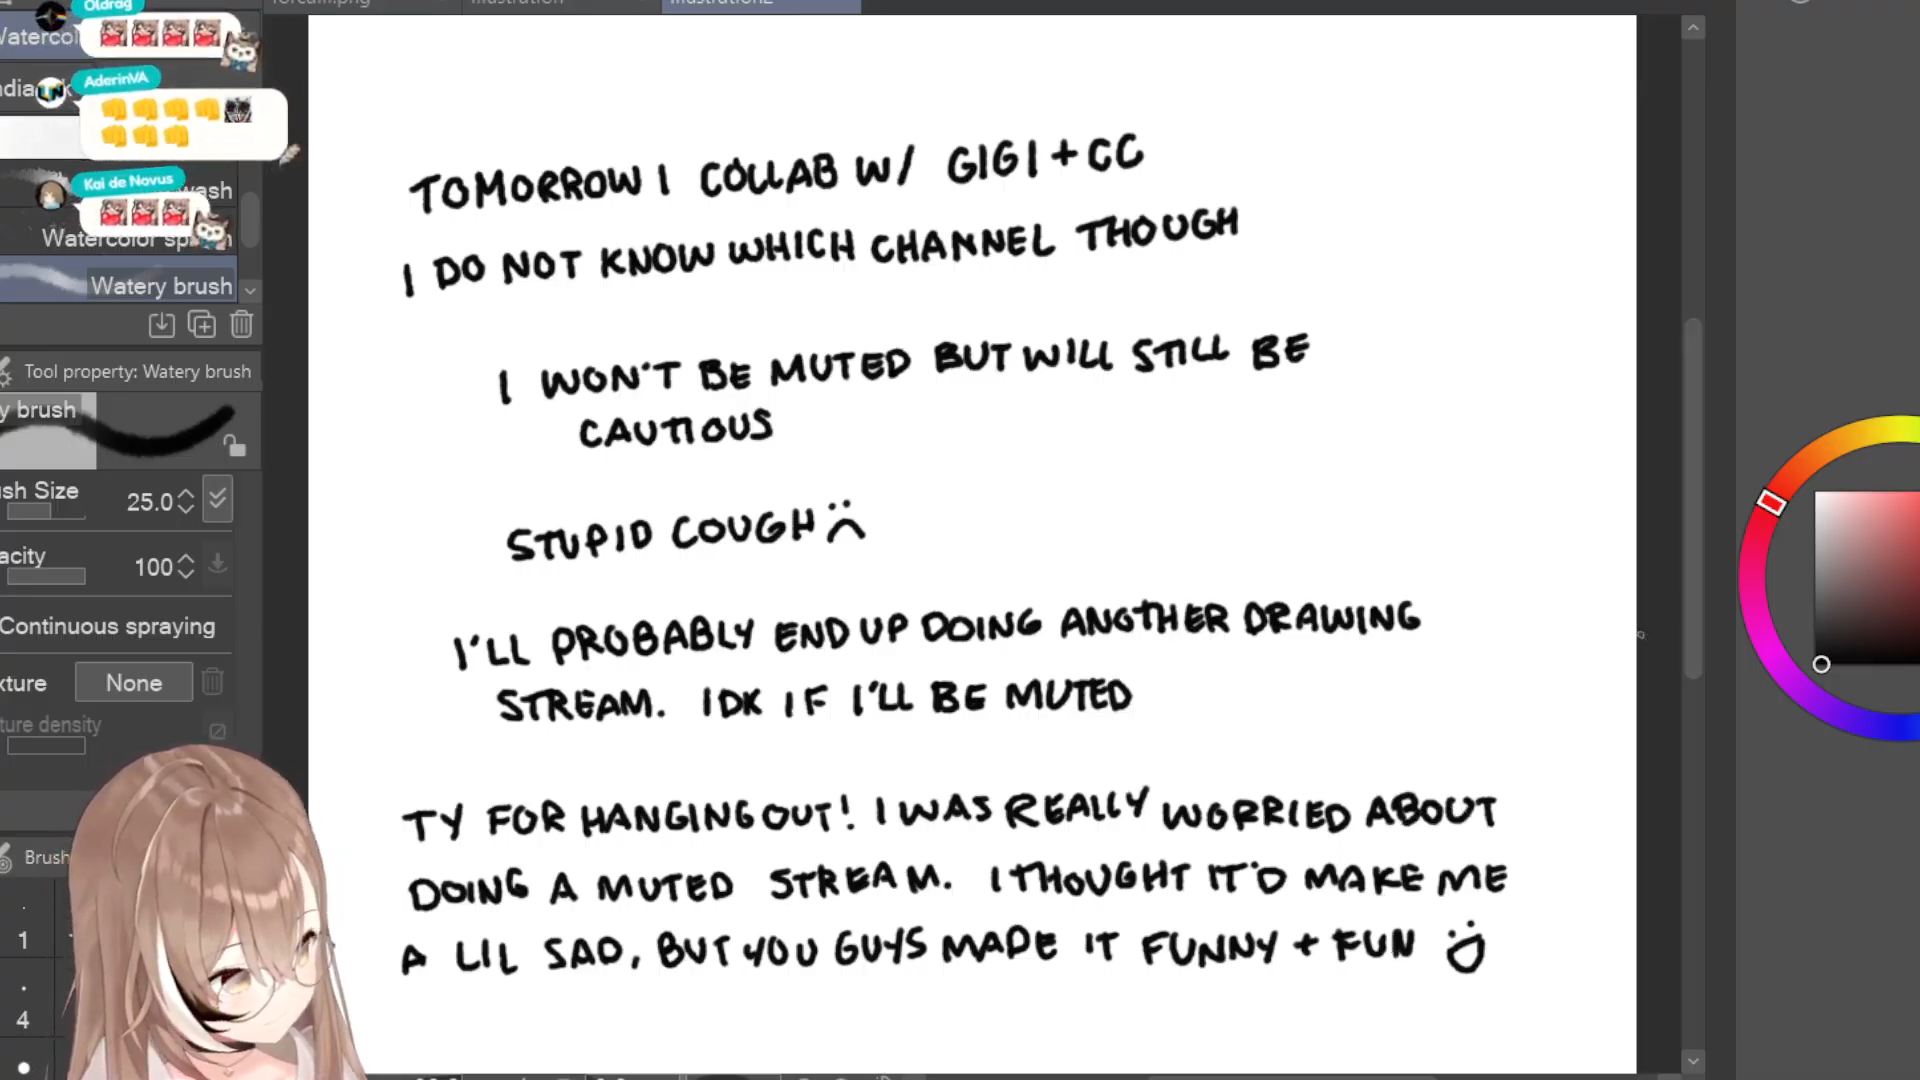 Illustration2
Oldrag
Watercol
AderinVA
Kai de Novus
wash
Watery brush
Tool property: Watery brush
y brush
sh Size
25.0
acity
100
Continuous spraying
xture
None
ture density
Brush
1
4
TOMORROW I COLLAB W/ GIGI + CC
I DO NOT KNOW WHICH CHANNEL THOUGH
I WON'T BE MUTED BUT WILL STILL BE
CAUTIOUS
STUPID COUGH
I'LL PROBABLY END UP DOING ANOTHER DRAWING
STREAM. IDK IF I'LL BE MUTED
TY FOR HANGING OUT! I WAS REALLY WORRIED ABOUT
DOING A MUTED STREAM. I THOUGHT IT'D MAKE ME
A LIL SAD, BUT YOU GUYS MADE IT FUNNY + FUN